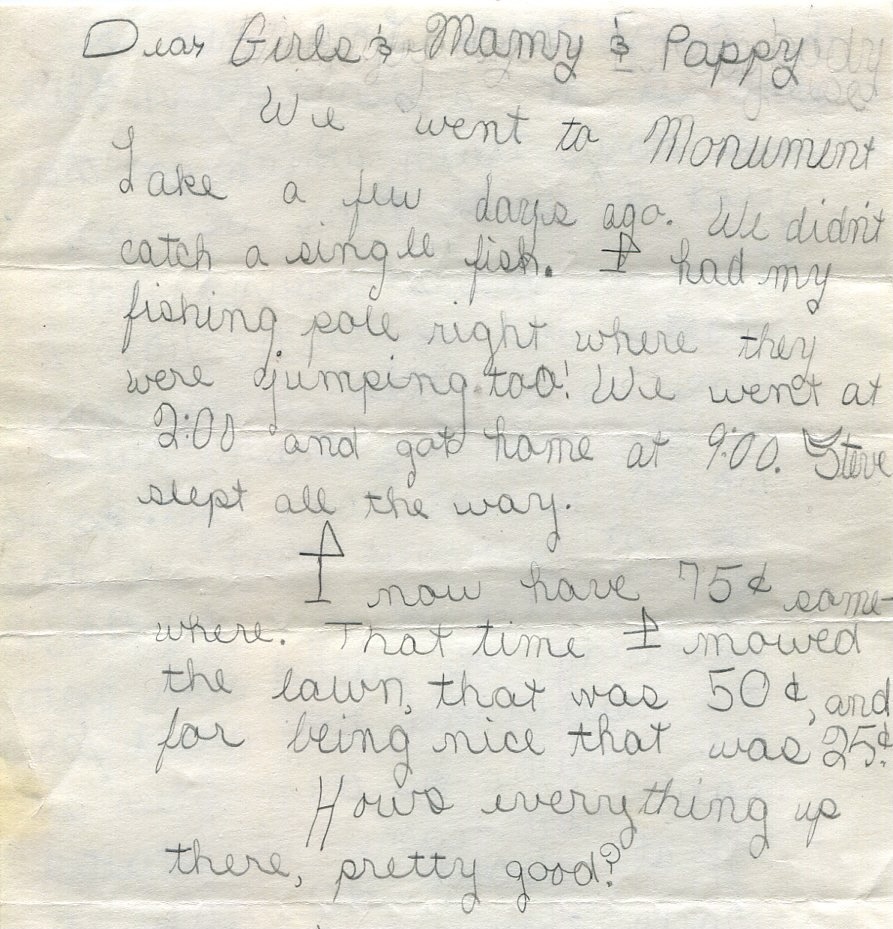 Dear Girls & Mamy & Pappy
We went to Monument
Lake a few days ago. We didn't
catch a single fish. I had my
fishing pole right where they
were jumping too! We went at
2:00 and got home at 9:00. Steve
slept all the way.
I now have 75¢ some-
where. That time I mowed
the lawn, that was 50¢, and
for being nice that was 25¢.
Hows everything up
there, pretty good?